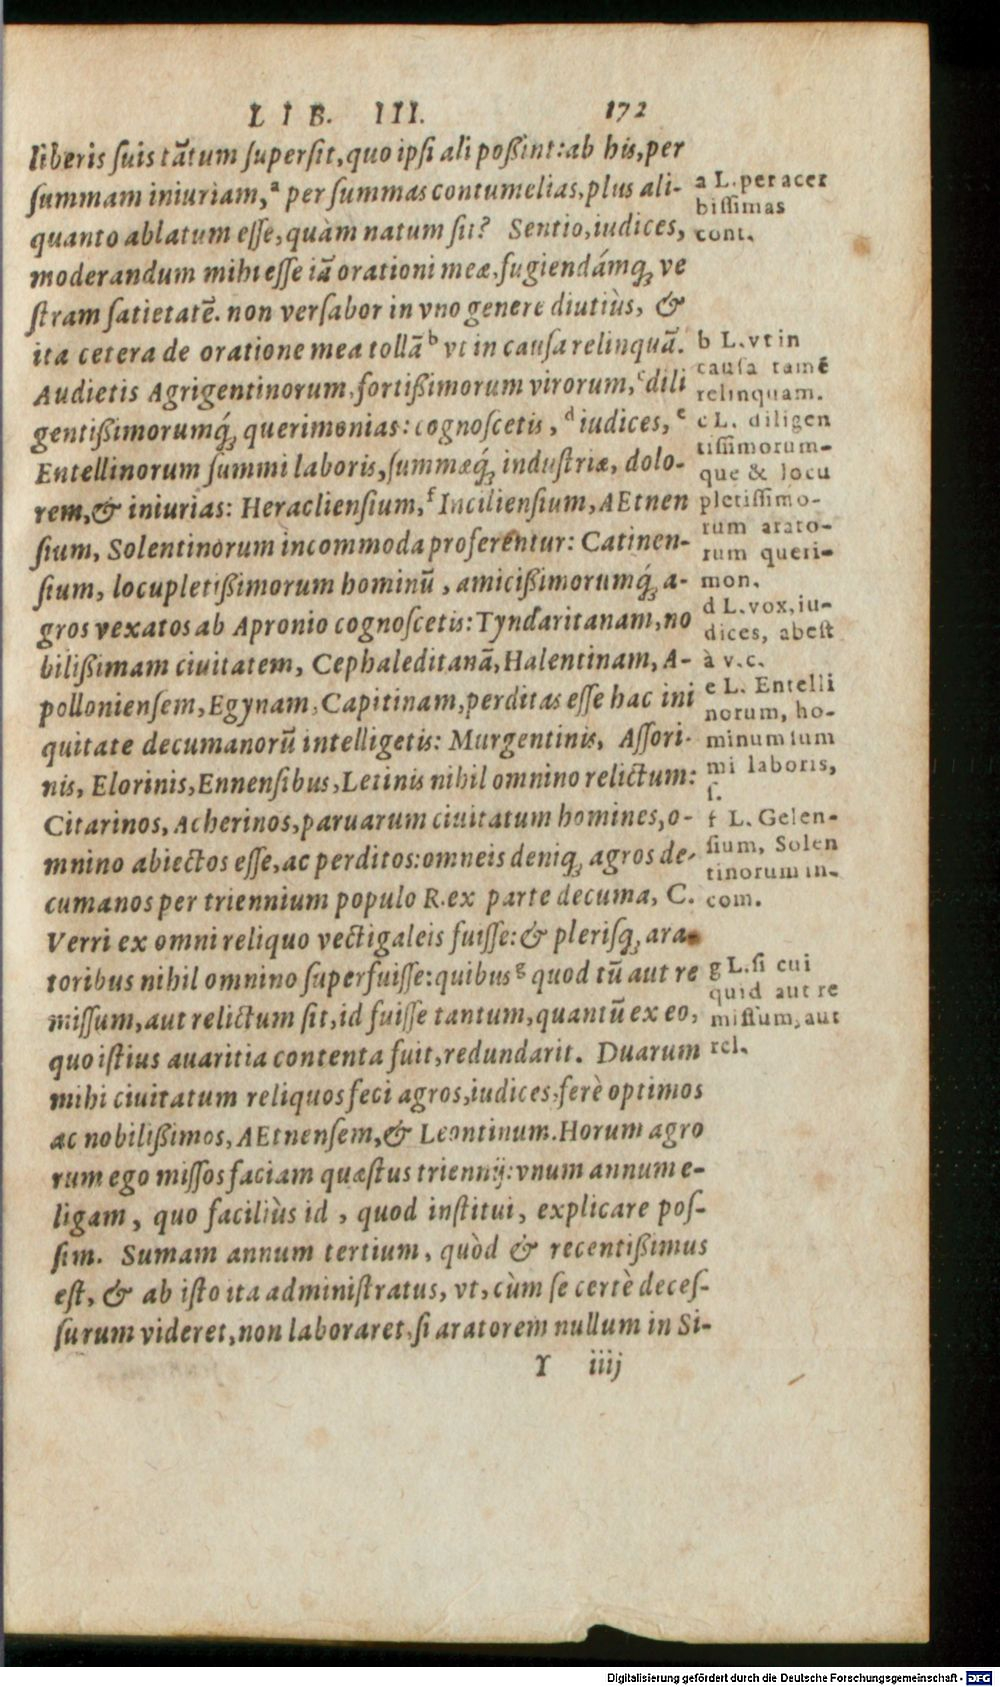 LIB. III. 172
liberis ſuis tātum ſuperſit, quo ipſi ali poßint: ab his, per
ſummam iniuriam,ᵃ per ſummas contumelias, plus ali-
quanto ablatum eſſe, quàm natum ſit? Sentio, iudices,
moderandum mihi eſſe iā orationi meæ, fugiendámq́; ve
ſtram ſatietatē. non verſabor in vno genere diutiùs, &
ita cetera de oratione mea tollāᵇ vt in cauſa relinquā.
Audietis Agrigentinorum, fortißimorum virorum,ᶜ dili
gentißimorumq́; querimonias: cognoſcetis,ᵈ iudices,ᵉ
Entellinorum ſummi laboris, ſummæq́; induſtriæ, dolo-
rem, & iniurias: Heraclienſium,ᶠ Incilienſium, AEtnen
ſium, Solentinorum incommoda proferentur: Catinen-
ſium, locupletißimorum hominū, amicißimorumq́; a-
gros vexatos ab Apronio cognoſcetis: Tyndaritanam, no
bilißimam ciuitatem, Cephaleditanā, Halentinam, A-
pollonienſem, Egynam, Capitinam, perditas eſſe hac ini
quitate decumanorū intelligetis: Murgentinis, Aſſori-
nis, Elorinis, Ennenſibus, Letinis nihil omnino relictum:
Citarinos, Acherinos, paruarum ciuitatum homines, o-
mnino abiectos eſſe, ac perditos: omneis deniq; agros de-
cumanos per triennium populo R. ex parte decuma, C.
Verri ex omni reliquo vectigaleis fuiſſe: & pleriſq; ara-
toribus nihil omnino ſuperfuiſſe: quibusᵍ quod tū aut re
miſſum, aut relictum ſit, id fuiſſe tantum, quantū ex eo,
quo iſtius auaritia contenta fuit, redundarit. Duarum
mihi ciuitatum reliquos feci agros, iudices, ferè optimos
ac nobilißimos, AEtnenſem, & Leontinum. Horum agro
rum ego miſſos faciam quæſtus triennij: vnum annum e-
ligam, quo faciliùs id, quod inſtitui, explicare poſ-
ſim. Sumam annum tertium, quòd & recentißimus
eſt, & ab iſto ita adminiſtratus, vt, cùm ſe certè deceſ-
ſurum videret, non laboraret, ſi aratorem nullum in Si-
Y iiij
a L. per acer
biſſimas
cont.
b L. vt in
cauſa tamē
relinquam.
c L. diligen
tiſſimorum-
que & locu
pletiſſimo-
rum arato-
rum queri-
mon.
d L. vox, iu-
dices, abeſt
à v.c.
e L. Entelli
norum, ho-
minum ſum
mi laboris,
ſ.
f L. Gelen-
ſium, Solen
tinorum in-
com.
g L. ſi cui
quid aut re
miſſum, aut
rel.
Digitalisierung gefördert durch die Deutsche Forschungsgemeinschaft - DFG